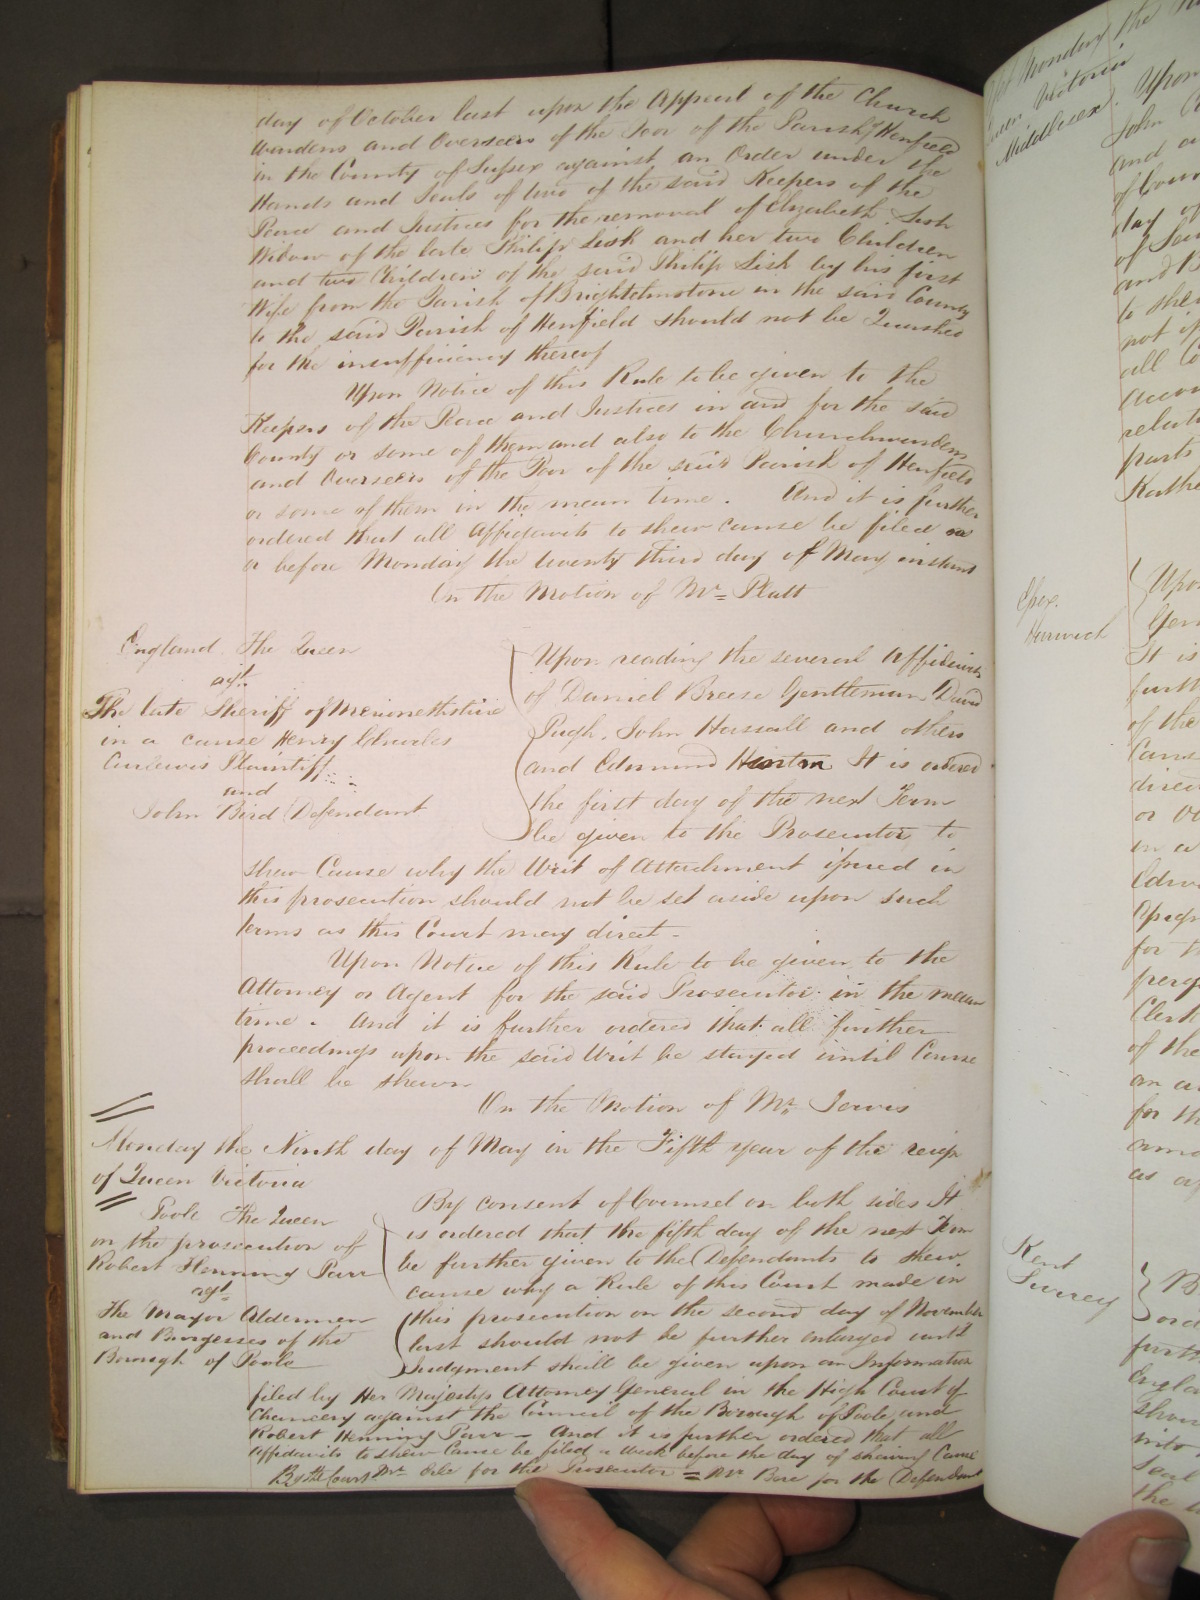 day of October last upon the Appeal of the Church
wardens and Overseers of the Poor of the Parish of Henfield
in the County of Sussex against an Order under the
Hands and Seals of two of the said Keepers of the
Peace and Justices for the removal of Elizabeth Lish
Widow of the late Philip Lish and her two Children
and two Children of the said Philip Lish by his first
Wife from the Parish of Brighthelmstone in the said County
to the said Parish of Henfield should not be Quashed
for the insufficiency thereof
Upon Notice of this Rule to be given to the
Keepers of the Peace and Justices in and for the said
County or some of them and also to the Churchwardens
and Overseers of the Poor of the said Parish of Henfield
or some of them in the mean time. And it is further
ordered that all Affidavits to shew cause be filed on
or before Monday the twenty third day of May instant
On the Motion of Mr. Platt
England The Queen
agt.
The late Sheriff of Merionethshire
in a cause Henry Charles
Plaintiff
and
John Bird Defendant
Upon reading the several Affidavits
of Daniel Breese Gentleman, David
Pugh, John Hassall and others
and Edmund Hinton It is ordered
the first day of the next Term
be given to the Prosecutor to
shew Cause why the Writ of Attachment issued in
this prosecution should not be set aside upon such
terms as this Court may direct -
Upon Notice of this Rule to be given to the
Attorney or Agent for the said Prosecutor in the mean
time. And it is further ordered that all further
proceedings upon the said Writ be stayed until Cause
shall be shewn
On the Motion of Mr. Jervis
Monday the Ninth day of May in the Fifth year of the reign
of Queen Victoria
Poole The Queen
on the prosecution of
Robert Henning Parr
agt.
The Mayor Aldermen
and Burgesses of the
Borough of Poole
By consent of Counsel on both sides It
is ordered that the fifth day of the next Term
be further given to the Defendants to shew
cause why a Rule of this Court made in
this prosecution on the second day of November
last should not be further enlarged until
Judgment shall be given upon an Information
filed by Her Majestys Attorney General in the High Court of
Chancery against the Council of the Borough of Poole and
Robert Henning Parr - And it is further ordered that all
Affidavits to shew Cause be filed a week before the day of shewing Cause
By the Court Mr. for the Prosecutor = Mr. Bere for the Defendant
Monday the
Victoria
Middlesex
Upon
John
and
day of
of
and
to shew
not
all
relati
parts
Essex.
Harwich
Upon
It is
furth
of the
or
for
Clerk
of the
for the
Kent
Surrey
furth
Engla
shou
into
Seal
the